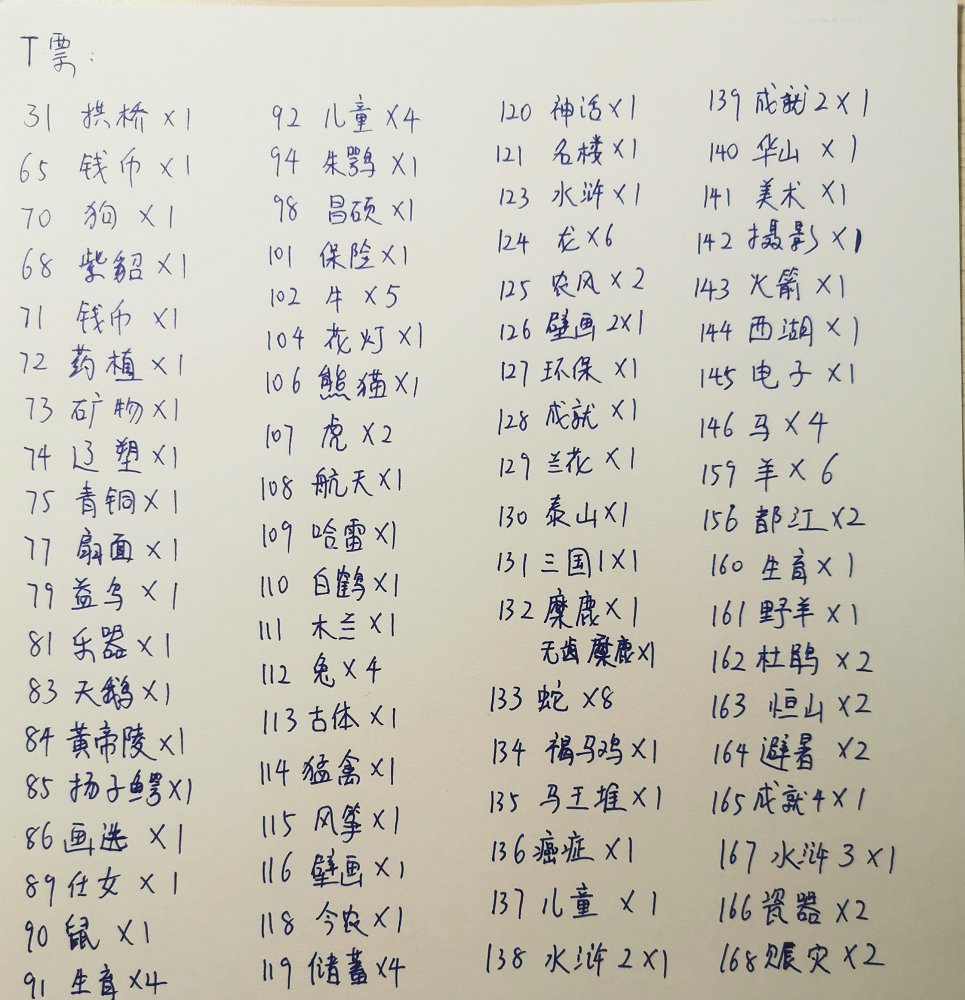 T票:
31 拱桥×1
65 钱币×1
70 狗×1
68 紫貂×1
71 钱币×1
72 药植×1
73 矿物×1
74 辽塑×1
75 青铜×1
77 扇面×1
79 益鸟×1
81 乐器×1
83 天鹅×1
84 黄帝陵×1
85 扬子鳄×1
86 画选×1
89 仕女×1
90 鼠×1
91 生育×4
92 儿童×4
94 朱鹮×1
98 昌硕×1
101 保险×1
102 牛×5
104 花灯×1
106 熊猫×1
107 虎×2
108 航天×1
109 哈雷×1
110 白鹤×1
111 木兰×1
112 兔×4
113 古体×1
114 猛禽×1
115 风筝×1
116 壁画×1
118 今农×1
119 储蓄×4
120 神话×1
121 名楼×1
123 水浒×1
124 龙×6
125 农风×2
126 壁画2×1
127 环保×1
128 成就×1
129 兰花×1
130 泰山×1
131 三国1×1
132 麋鹿×1
无齿麋鹿×1
133 蛇×8
134 褐马鸡×1
135 马王堆×1
136 癌症×1
137 儿童×1
138 水浒2×1
139 成就2×1
140 华山×1
141 美术×1
142 摄影×1
143 火箭×1
144 西湖×1
145 电子×1
146 马×4
159 羊×6
156 都江×2
160 生育×1
161 野羊×1
162 杜鹃×2
163 恒山×2
164 避暑×2
165 成就4×1
167 水浒3×1
166 瓷器×2
168 赈灾×2